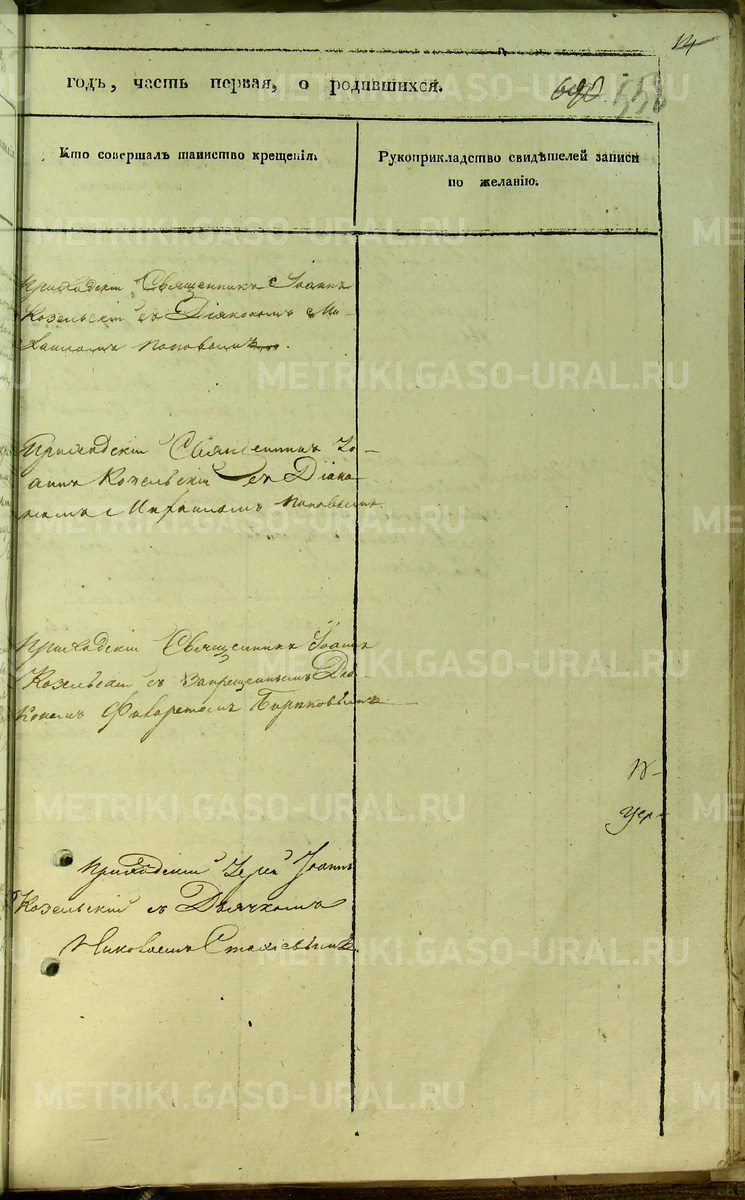 14
годъ, часть первая, о родившихся.
690 558
Кто совершалъ таинство крещенія.
Рукоприкладство свидѣтелей записи
по желанію.
Приходскій Священникъ Іоаннъ
Козельскій съ Діякономъ Ми-
хаиломъ Поповымъ.
Приходскій Священникъ Іо-
аннъ Козельскій съ Діако-
номъ Михаиломъ Поповымъ.
Приходскій Священникъ Іоаннъ
Козельскій съ Запрещеннымъ Диа-
кономъ Филаретомъ
Приходскій Іерей Іоаннъ
Козельскій съ Дьячкомъ
Николаемъ
METRIKI.GASO-URAL.RU